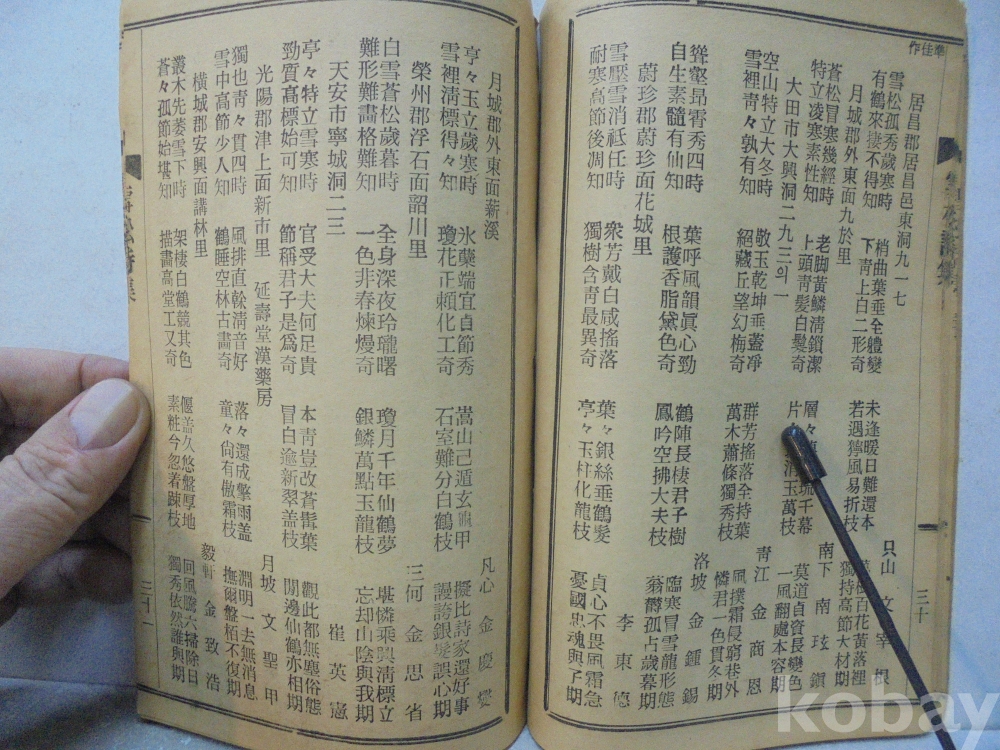 準佳作
居昌郡居昌邑東洞九一七 只山 文宰根
雪松孤秀歲寒時 梢曲葉垂全體變 未逢暖日難還本 百花黃落裡
有鶴來捿不得知 下靑上白二形奇 若遇獰風易折枝 獨持高節大材期
月城郡外東面九於里 南下 南玹鎭
蒼松冒寒幾經時 老脚黃鱗淸鎖潔 層々 千幕 莫道自資長變色
特立凌寒素性知 上頭靑髮白鬢奇 片 玉萬枝 一風翻處本容期
大田市大興洞二九三의一 靑江 金商恩
空山特立大冬時 敬玉乾坤垂蓋淨 群芳搖落全持葉 風撲霜侵窮巷外
雪裡靑々孰有知 絕藏丘望幻梅奇 萬木蕭條獨秀枝 憐君一色貫冬期
洛坡 金鍾錫
聳壑昻霄秀四時 葉呼風韻眞心勁 鶴陣長棲君子樹 臨寒冒雪龍形態
自生素髓有仙知 根護香脂黛色奇 鳳吟空拂大夫枝 蓊欝孤占歲暮期
蔚珍郡蔚珍面花城里 李東悳
雪壓雪消祗任時 衆芳戴白咸搖落 葉々銀絲垂鶴髮 貞心不畏風霜急
耐寒高節後凋知 獨樹含靑最異奇 亭々玉柱化龍枝 憂國忠魂與子期
三十
月城郡外東面薪溪 凡心 金慶
亨々玉立歲寒時 氷蘗端宜自節秀 嵩山己遁玄 甲 擬比詩家還好事
雪裡淸標得々知 瓊花正頼化工奇 石室難分白鶴枝 謾誇銀髮誤心期
榮州郡浮石面韶川里 三何 金思省
白雪蒼松歲暮時 全身深夜玲瓏曙 瓊月千年仙鶴夢 堪憐乘興淸標立
難形難畵格難知 一色非春煉熳奇 銀鱗萬點玉龍枝 忘却山陰與我期
天安市寧城洞二三 崔英憲
亭々特立雪寒時 官受大夫何足貴 本靑豈改蒼髯葉 觀此都無塵俗態
勁質高標始可知 節稱君子是爲奇 冒白逾新翠盖枝 閒邊仙鶴亦相期
光陽郡津上面新市里 延壽堂漢藥房 月坡 文聖甲
獨也靑々貫四時 風排直榦淸音好 落々還成擎雨盖 淵明一去無消息
雪中高節少人知 鶴睡空林古畵奇 童々尙有傲霜枝 撫爾盤栢不復期
橫城郡安興面講林里 毅軒 金致浩
叢木先萎雪下時 架棲白鶴競其色 偃盖久悠盤厚地 回風騰六掃除日
蒼々孤節始堪知 描畵高堂工又奇 素粧今忽着踈枝 獨秀依然誰與期
三十一
kobay